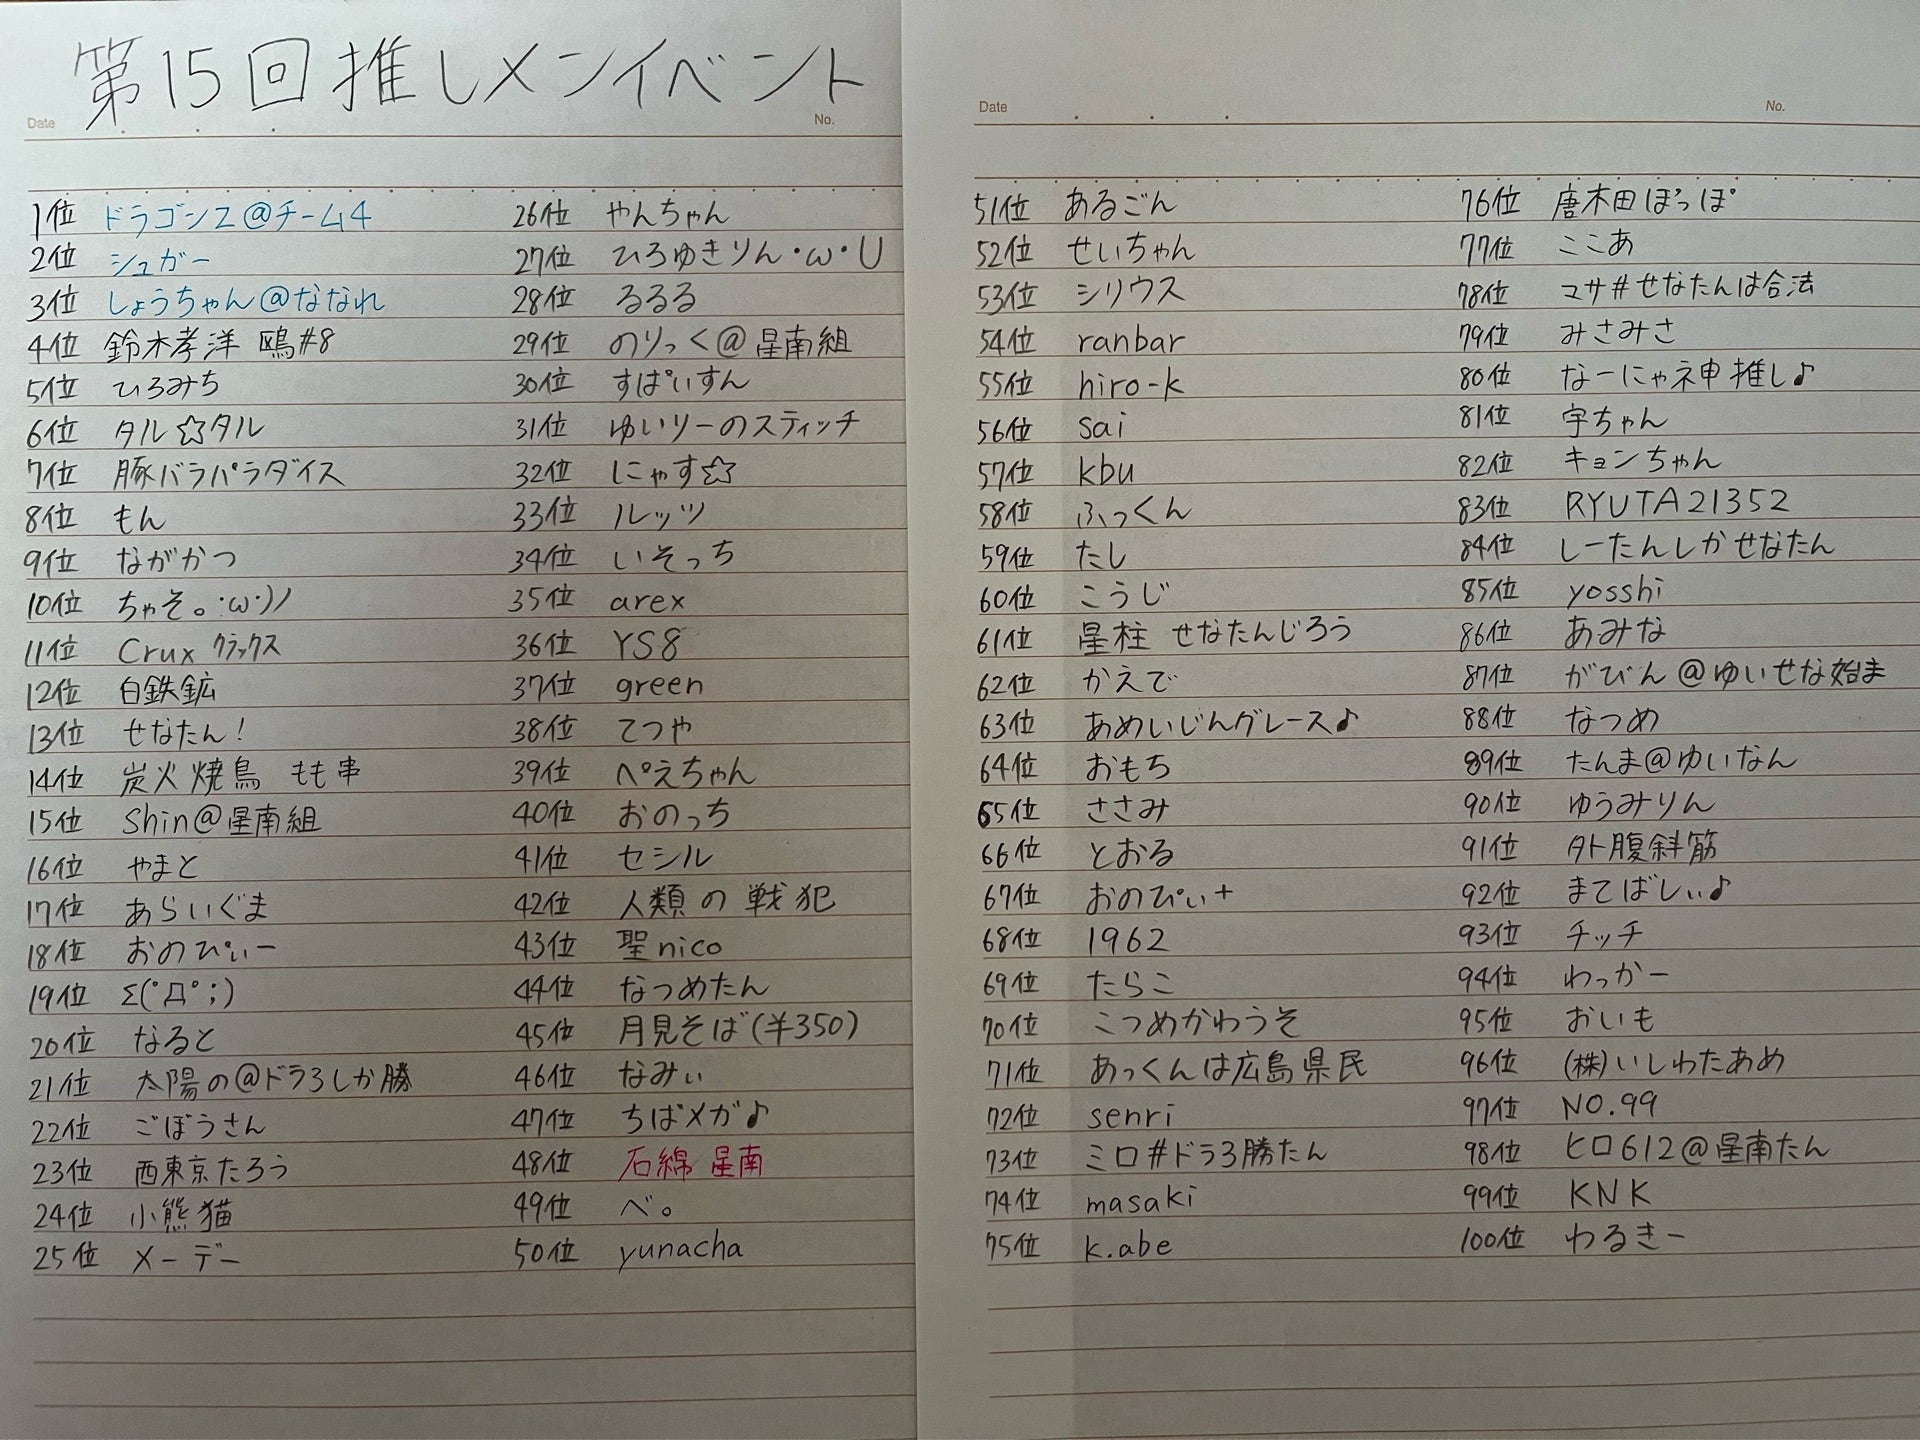 第15回推しメンイベント
Date
No.
1位 ドラゴンZ@チーム4
2位 シュガー
3位 しょうちゃん@ななれ
4位 鈴木孝洋 鴎#8
5位 ひろみち
6位 タル☆タル
7位 豚バラパラダイス
8位 もん
9位 ながかつ
10位 ちゃそ。・ω・)ノ
11位 Crux クラックス
12位 白鉄鉱
13位 せなたん!
14位 炭火焼鳥 もも串
15位 Shin@星南組
16位 やまと
17位 あらいぐま
18位 おのぴぃー
19位 Σ(゚Д゚;)
20位 なると
21位 太陽の@ドラ3しか勝
22位 ごぼうさん
23位 西東京たろう
24位 小熊猫
25位 メーデー
26位 やんちゃん
27位 ひろゆきりん・ω・U
28位 るるる
29位 のりっく@星南組
30位 すぱいすん
31位 ゆいりーのスティッチ
32位 にゃす☆
33位 ルッツ
34位 いそっち
35位 arex
36位 YS8
37位 green
38位 てつや
39位 ぺえちゃん
40位 おのっち
41位 セシル
42位 人類の戦犯
43位 聖nico
44位 なつめたん
45位 月見そば(¥350)
46位 なみぃ
47位 ちばメガ♪
48位 石綿星南
49位 べ。
50位 yunacha
Date
No.
51位 あるごん
52位 せいちゃん
53位 シリウス
54位 ranbar
55位 hiro-k
56位 sai
57位 kbu
58位 ふっくん
59位 たし
60位 こうじ
61位 星柱 せなたんじろう
62位 かえで
63位 あめいじんグレース♪
64位 おもち
65位 ささみ
66位 とおる
67位 おのぴぃ+
68位 1962
69位 たらこ
70位 こつめかわうそ
71位 あっくんは広島県民
72位 senri
73位 ミロ#ドラ3勝たん
74位 masaki
75位 k.abe
76位 唐木田ぽっぽ
77位 ここあ
78位 マサ#せなたんは合法
79位 みさみさ
80位 なーにゃネ申推し♪
81位 宇ちゃん
82位 キョンちゃん
83位 RYUTA21352
84位 しーたんしかせなたん
85位 yosshi
86位 あみな
87位 がびん@ゆいせな始ま
88位 なつめ
89位 たんま@ゆいなん
90位 ゆうみりん
91位 外腹斜筋
92位 まてばしぃ♪
93位 チッチ
94位 わっかー
95位 おいも
96位 (株)いしわたあめ
97位 NO.99
98位 ヒロ612@星南たん
99位 KNK
100位 わるきー